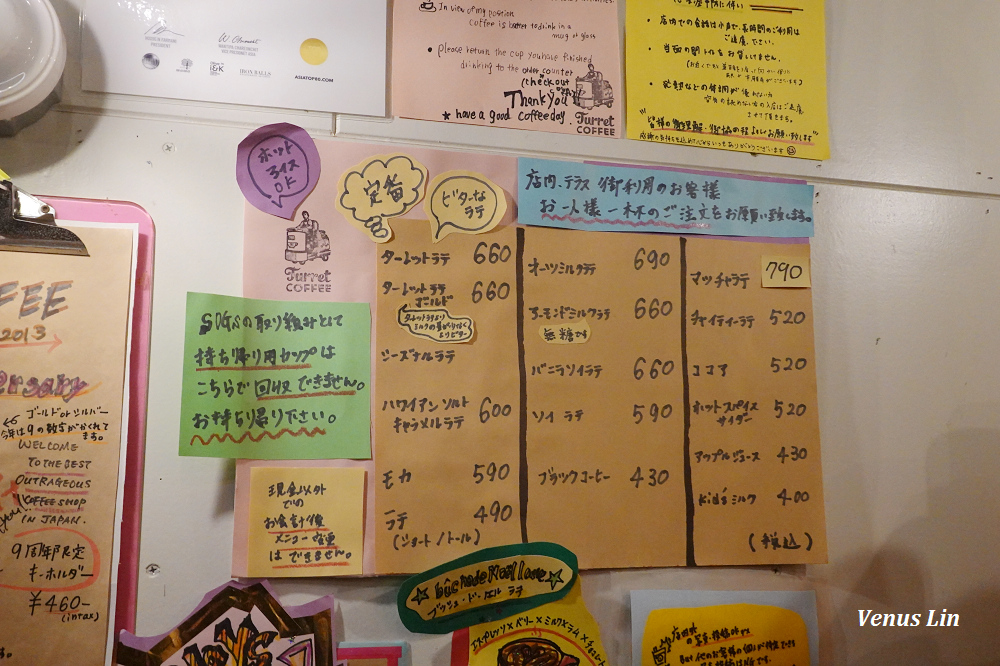 PRESIDENT
IRON BALLS
ASIATOP50.COM
In view of my position
coffee is better to drink in a
mug or glass
• please return the cup you have finished
drinking to the order counter
(checkout
Thank you
★ have a good coffee day.
Turret
COFFEE
当面の間
ホット
アイス
OK
定番
ビターな
ラテ
店内、テラス 御利用のお客様
お一人様 一杯のご注文をお願い致します。
Turret
COFFEE
SDGsの取り組みとして
持ち帰り用カップは
こちらで回収できません。
お持ち帰り下さい。
現金以外
での
お会計後
メニュー変更
はできません。
ターレットラテ 660
ターレットラテ
ゴールド 660
シーズナルラテ
ハワイアン ソルト
キャラメルラテ 600
モカ 590
ラテ 490
(ショート/トール)
オーツミルクラテ 690
アーモンドミルクラテ 660
無糖です
バニラソイラテ 660
ソイ ラテ 590
ブラックコーヒー 430
マッチャラテ 790
チャイティーラテ 520
ココア 520
ホットスパイス
サイダー 520
アップルジュース 430
Kid's ミルク 400
(税込)
FEE
2013
ersary
ゴールド or シルバー
今年は9の数字がかくれて
ます。
WELCOME
TO THE BEST
OUTRAGEOUS
COFFEE SHOP
IN JAPAN.
9周年限定
キーホルダー
¥460-
(in tax)
bûche de Noël love
ブッシュ・ド・ノエル ラテ
エスプレッソ×ベリー×ミルク×ラム×チョコレート
Venus Lin